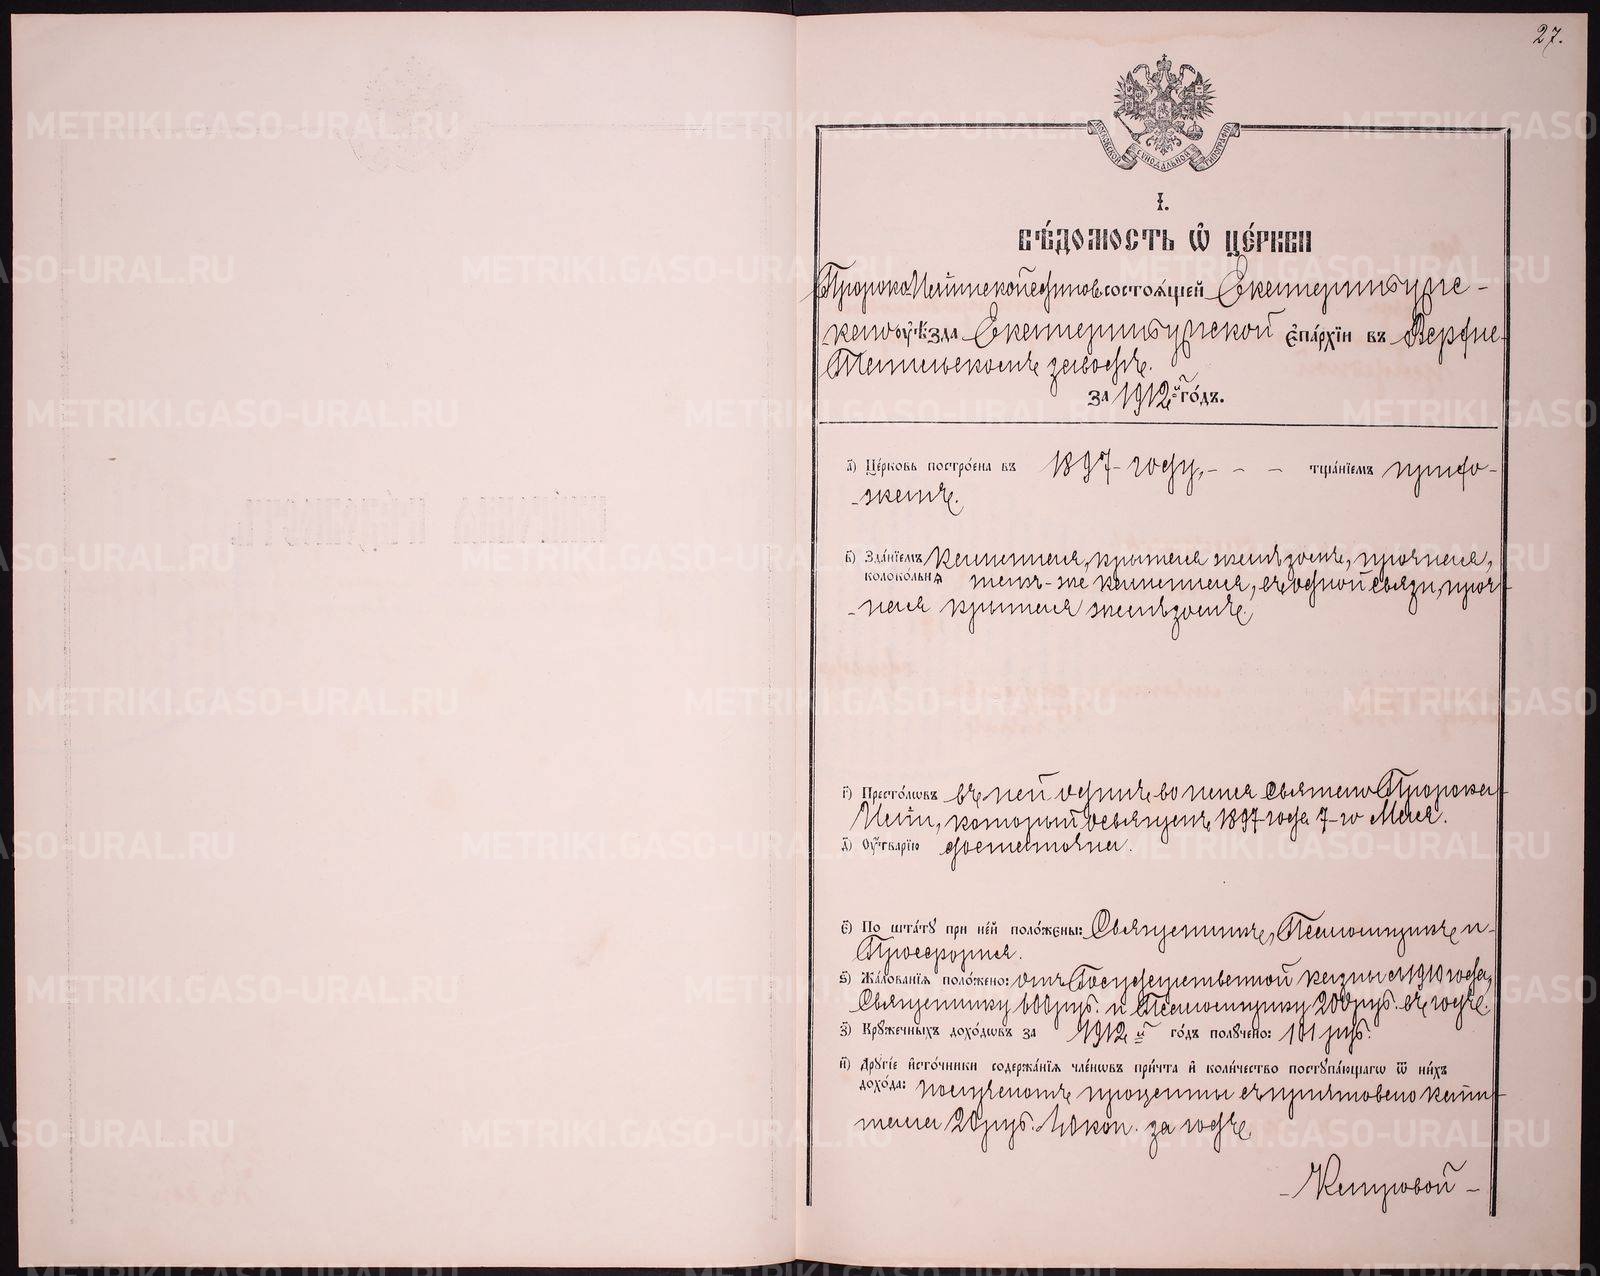 27.
МОСКОВСКОЙ СУНОДАЛЬНОЙ ТИПОГРАФІИ
І.
ВѢ́ДОМОСТЬ Ѡ҆ ЦЕ́РКВИ
Пророко-Илiинской единов. состоѧ́щей Екатеринбургс-
каго оу҆ѣ́зда Екатеринбургской є҆па́рхїи въ Верхне-
Тагильскомъ заводѣ.
за 1912й го́дъ.
а҃) Це́рковь постро́ена въ 1897 году, - - - тща́нїемъ прихо-
-жанъ.
в҃) Зда́нїемъ каменная, крытая желѣзомъ, прочная,
колоко́льнѧ такъ-же каменная, въ одной связи, проч-
-ная крытая желѣзомъ.
г҃) Престо́лѡвъ въ ней одинъ во имя Святаго Пророка
Иліи, который освященъ 1897 года 7-го Мая.
д҃) Оу҆́тварїю достаточна.
є҃) По шта́тꙋ при не́й поло́жены: Священникъ, Псаломщикъ и
Просфорня.
ѕ҃) Жа́лованїѧ поло́жено: отъ Государственной казны съ 1910 года,
Священнику 600 руб. и Псаломщику 200 руб. въ годъ.
з҃) Крꙋ́жечныхъ дохо́дѡвъ за 1912й го́дъ полꙋ́чено: 101 руб.
и҃) Дрꙋгі́е и҆сто́чники содержа́нїѧ чле́нѡвъ при́чта и҆ коли́чество постꙋпа́ющагѡ ѿ ни́хъ
дохо́да: получаютъ проценты съ причтоваго капи-
тала 20 руб. 40 коп. за годъ